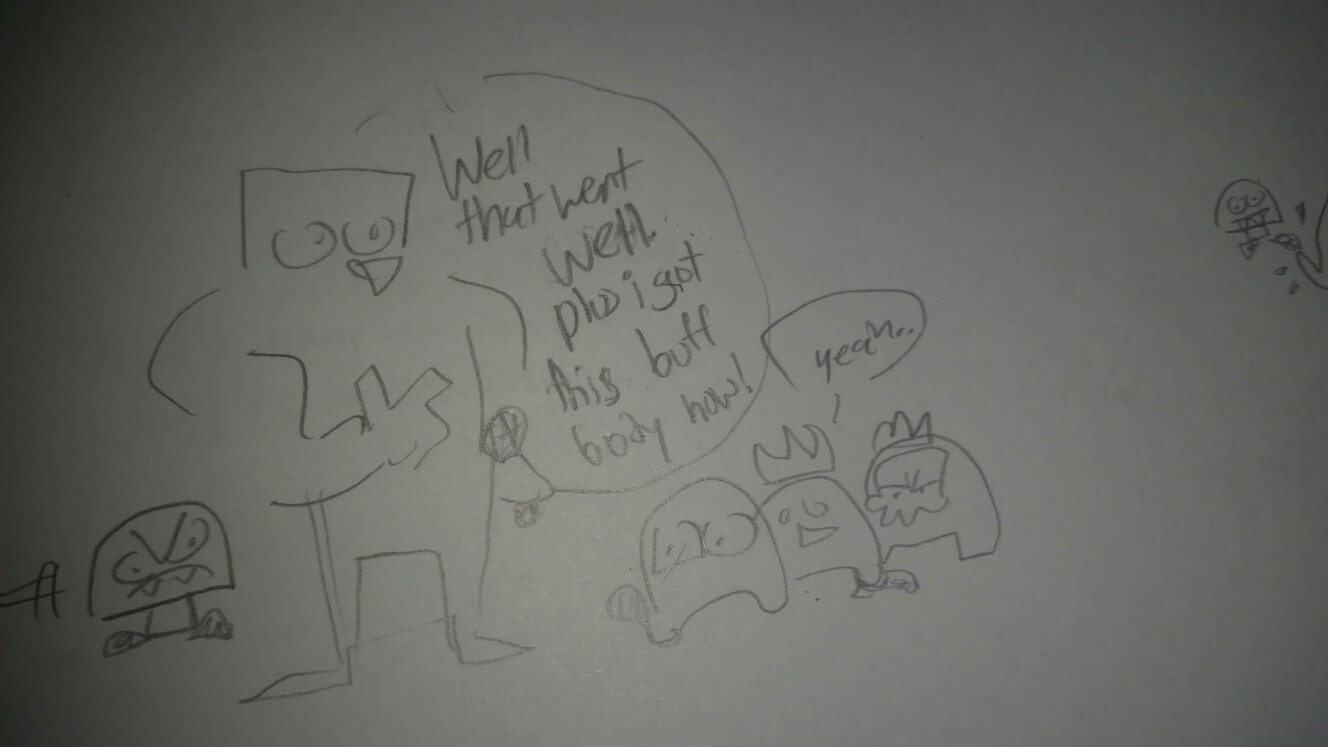 Well
that went
well.
plus i got
this buff
body now!
yeah..